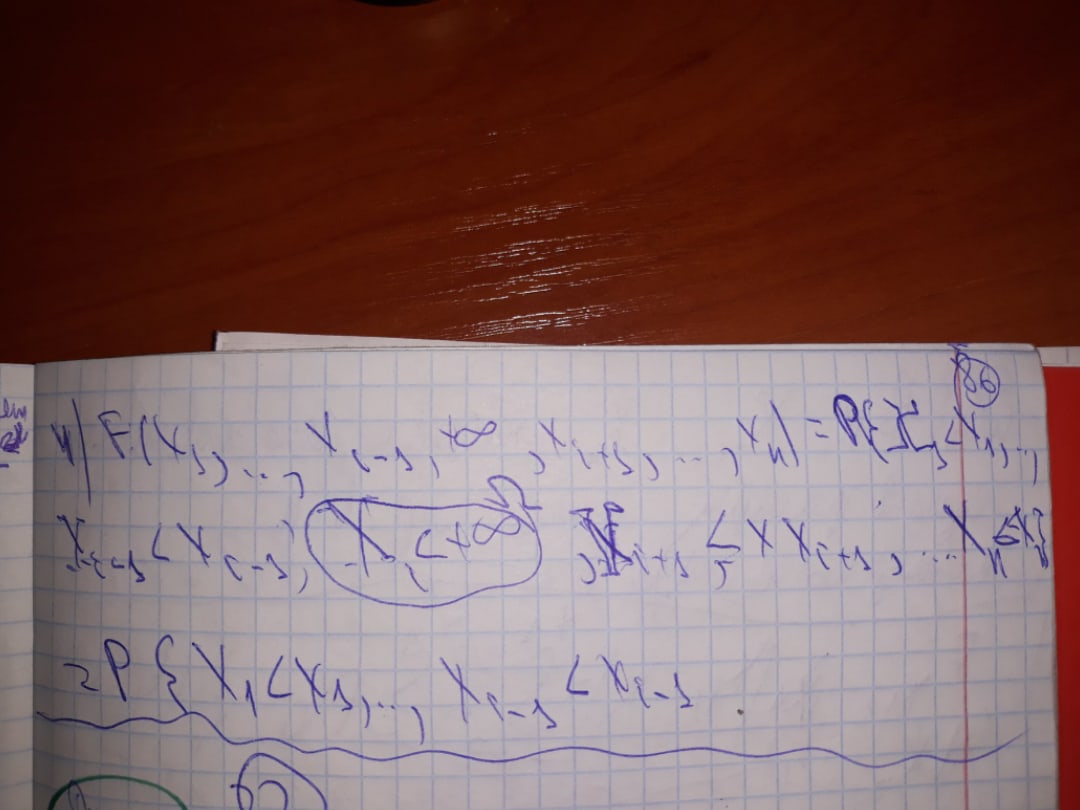 86
4) F(x₁, ..., x_{i-1}, +∞, x_{i+1}, ..., x_n) = P{X₁ < x₁, ..,
X_{i-1} < x_{i-1}, X_i < +∞ Ω, X_{i+1} < x x_{i+1}, ... X_n < x_n}
= P { X₁ < x₁, .., X_{i-1} < x_{i-1}